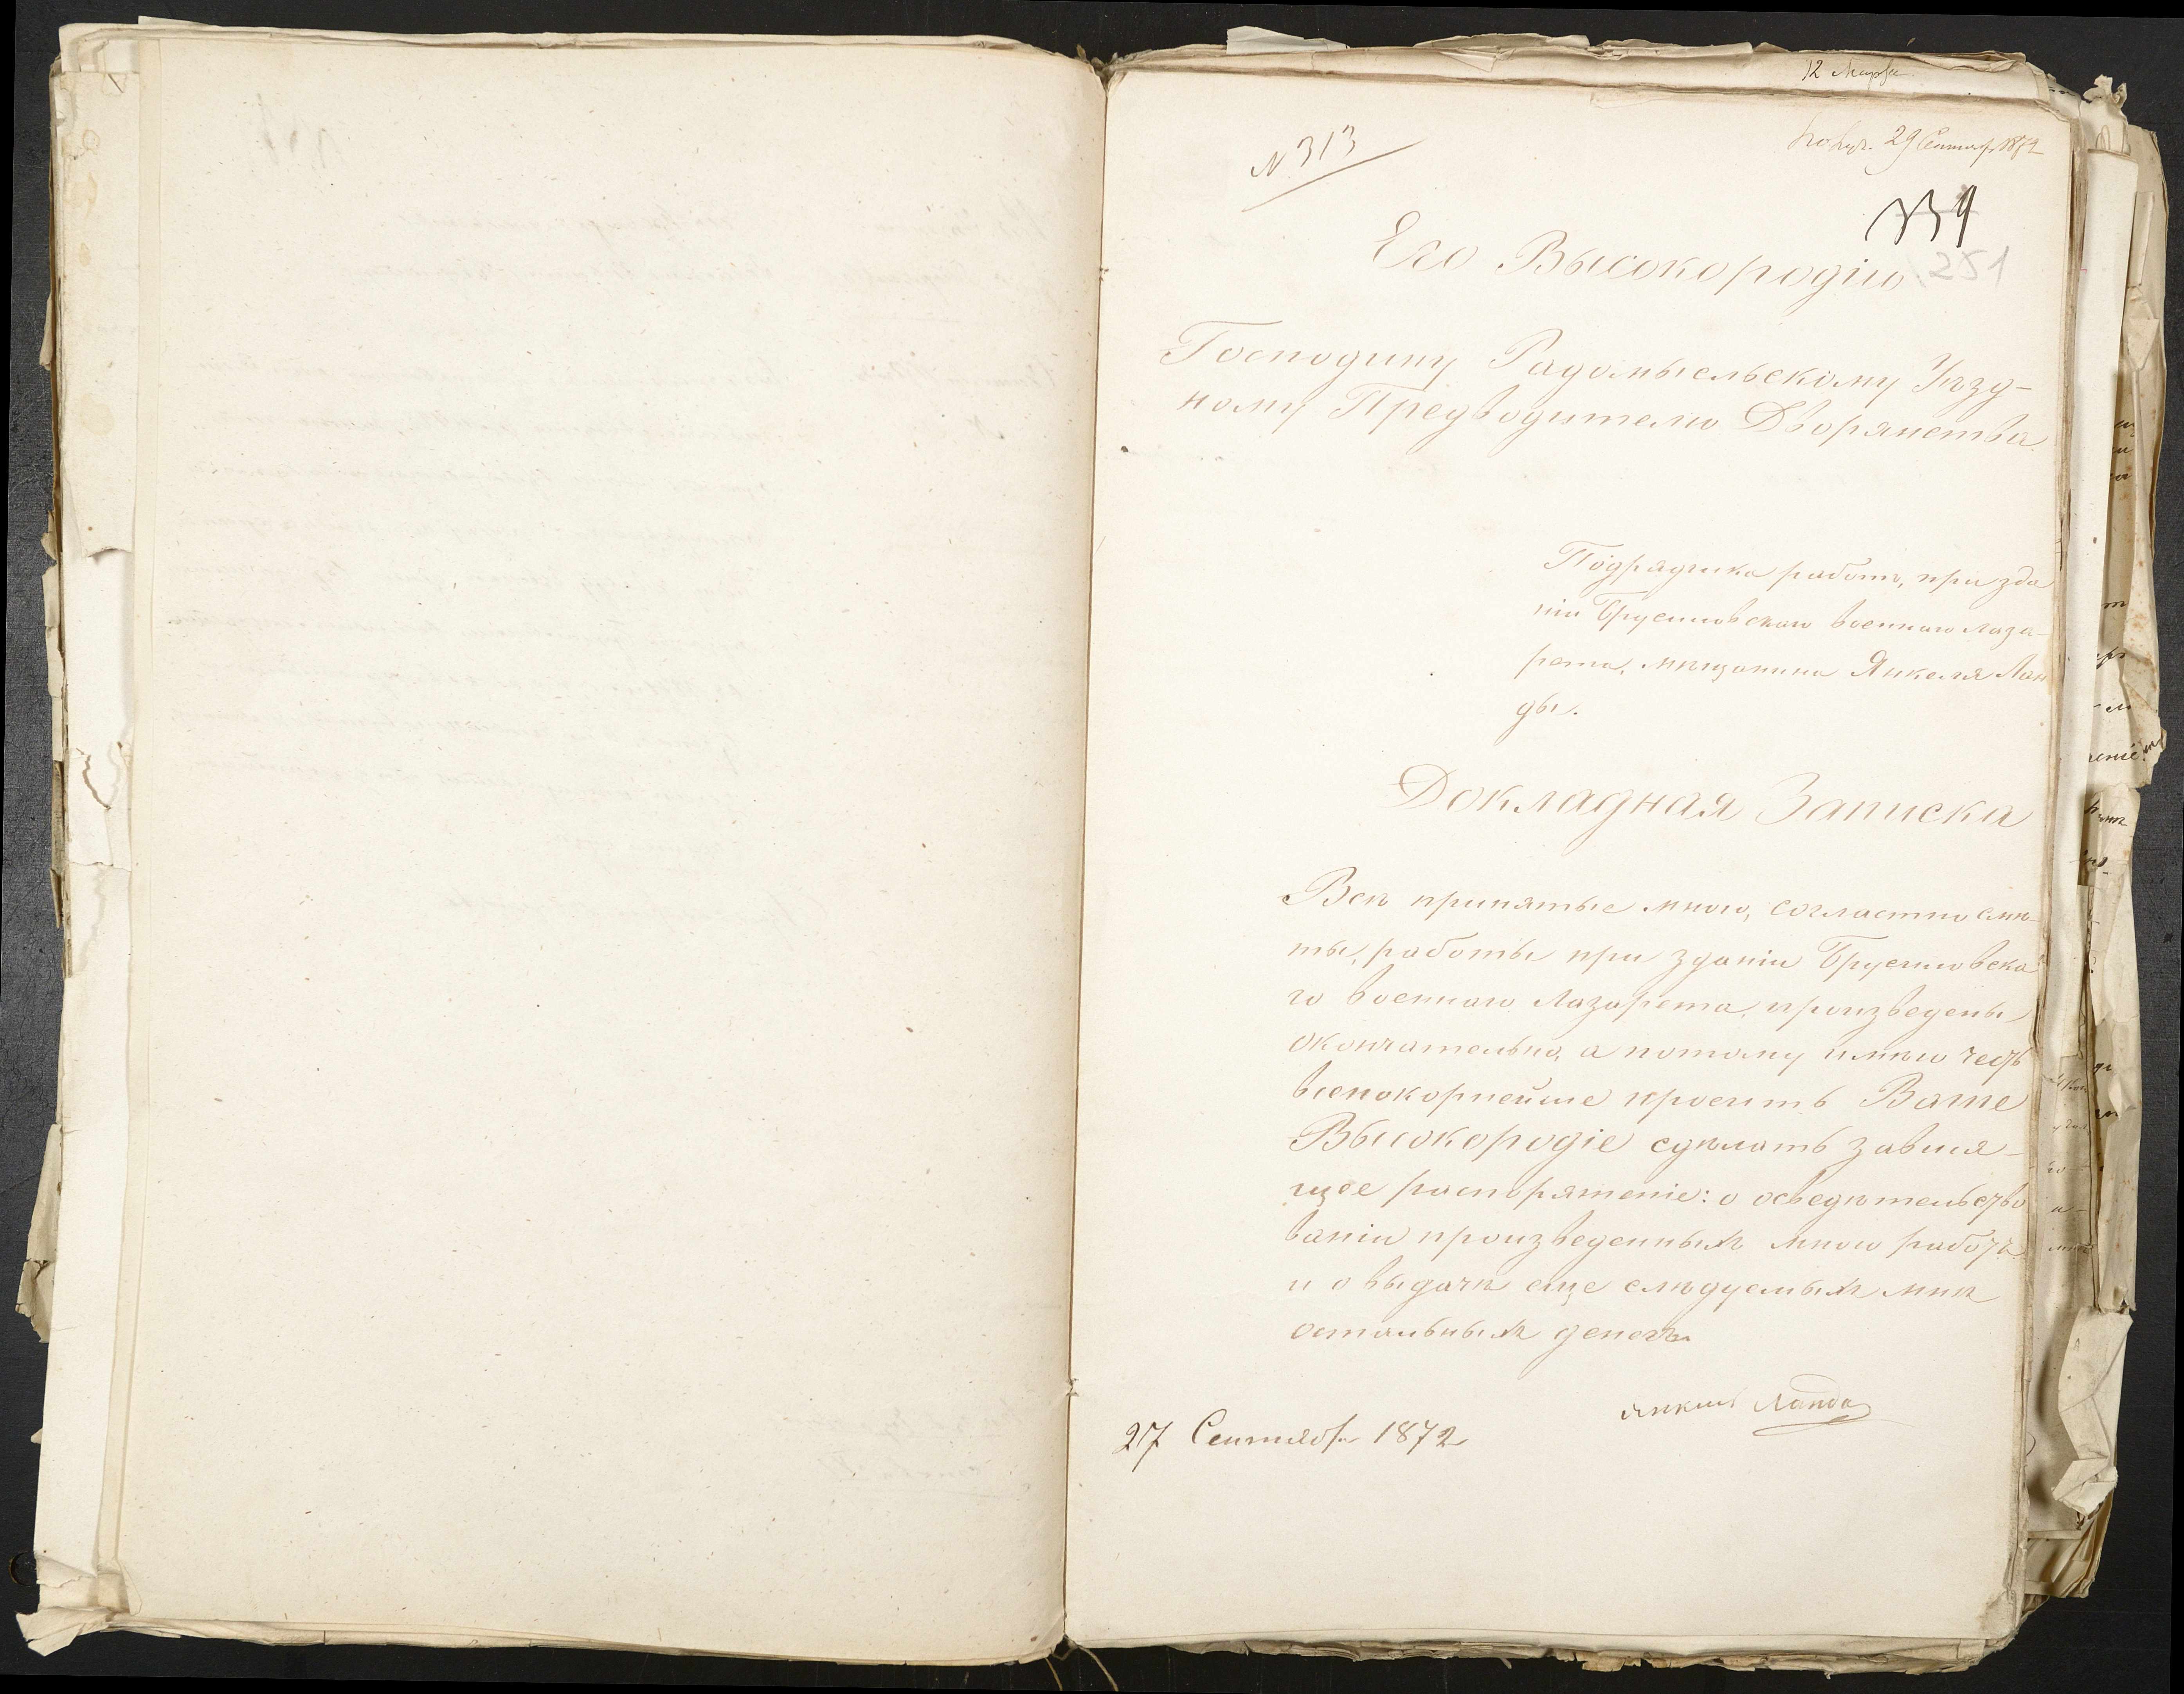 12 Марта
Получ. 29 Сентяб. 1872
N 313
251
Его Высокородію
Господину Радомысльскому Уѣзд-
ному Предводителю Дворянства
Подрядчика работъ, при зда
ніи Брусиловскаго военнаго лаза-
рета, мѣщанина Янкеля Лан
ды.
Докладная Записка
Всѣ принятые мною, согластно смѣ-
ты, работы при зданіи Брусиловска
го военнаго Лазарета, произведены
окончательно, а потому имѣю честь
всепокорнейше просить Ваше
Высокородіе сдѣлать завися-
щее распоряженіе: о осведѣтельство
ваніи произведенныхъ мною работъ
и о выдачѣ еще слѣдуемыхъ мнѣ
остальныхъ денегъ
Янкель Ланда
27 Сентября 1872